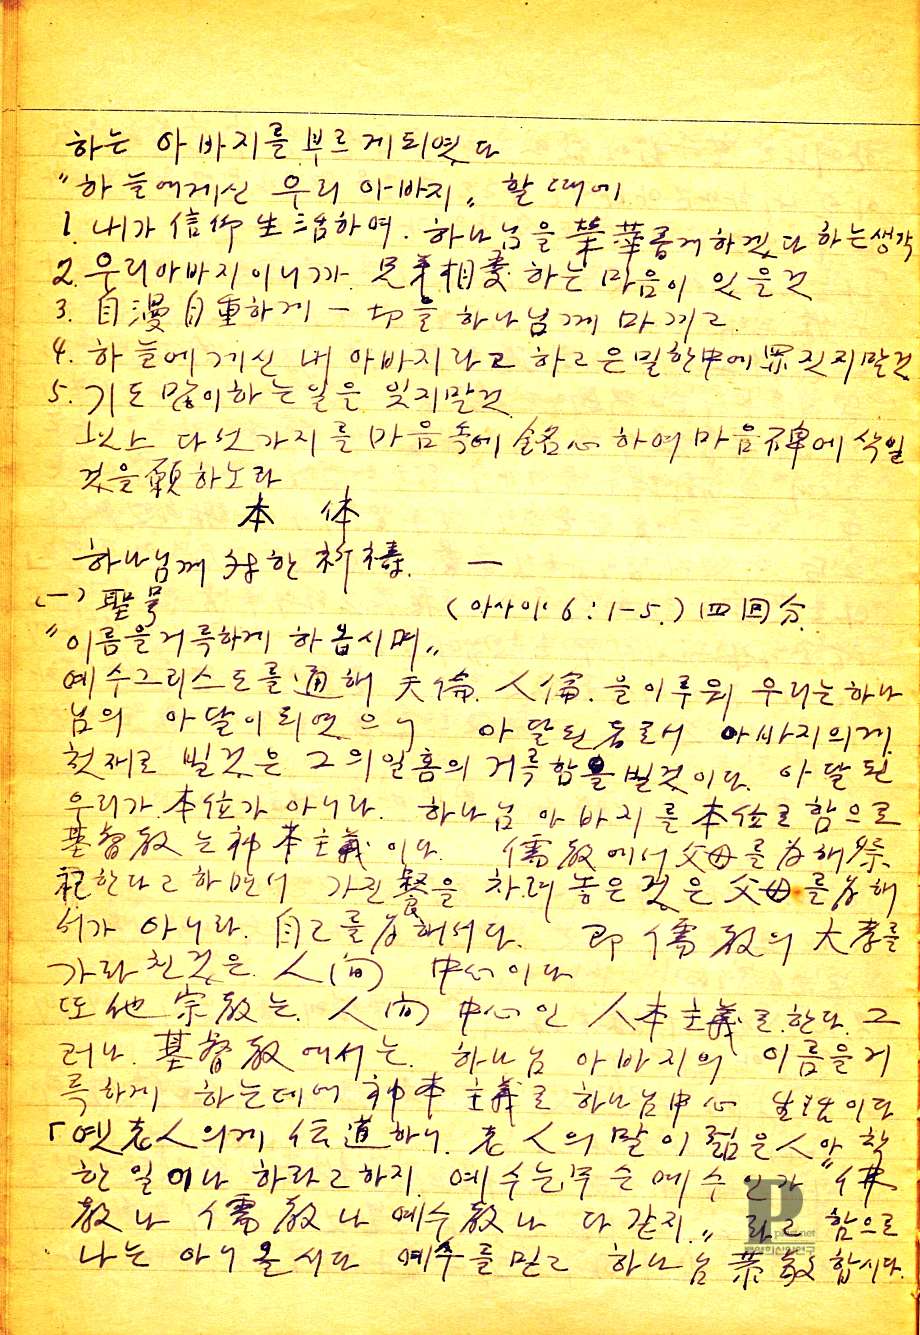 하는 아바지를 부르게되엿다
"하늘에게신 우리 아바지„ 할 때에
1. 내가 信仰生活하여. 하나님을 榮華롭게하겠다 하는생각
2. 우리아바지이니까. 兄弟相愛하는 마음이 있을것
3. 自漫自重하게 一切을 하나님께 마끼고.
4. 하늘에게신 내 아바지라고 하고 은밀한中에 罪짓지말것
5. 기도 많이하는일을 잊지말것
以上 다섯가지를 마음속에 銘心하여 마음碑에 삭일
것을 願하노라
本 体
하나님께 対한 祈禱. 一
(一) 聖号 (마사이 6:1-5.) 四回分.
"이름을거륵하게 하옵시며„
예수그리스도를 通해 天倫. 人倫.을이루워 우리는하나
님의 아달이되엿으니 아달된 者로서 아바지의게
첫재로 빌것은 그의일홈의 거륵함을빌것이다. 아달된
우리가 本位가 아니라. 하나님 아바지를 本位로 함으로
基督敎는 神本主義이다. 儒敎에서 父母를 為해 祭
祀한다고하면서 가진 饌을 차려놓은것은 父母를為해
서가 아니라. 自己를為해서다. 即 儒敎의 大孝를
가라친것은 人間 中心이다
또 他宗敎는. 人間 中心인 人本主義로한다. 그
러나. 基督敎에서는. 하나님 아바지의 이름을거
륵하게 하는데에 神本主義로 하나님中心 生活이다
「옛老人의게 伝道하니. 老人의 말이 젊은人아 착
한일이나 하라고하지. 예수는무슨예수인가 "佛
敎나 儒敎나 예수敎나 다같지.„ 라고 함으로
나는 아니올시다 예수를믿고 하나님恭敬합시다.